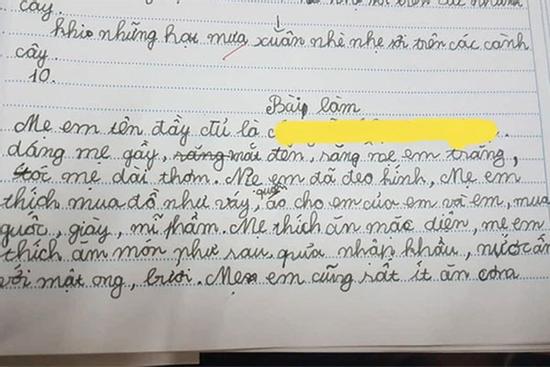 cây.
khi những hạt mưa xuân nhè nhẹ rơi trên các cành
cây.
10.
Bài làm
Mẹ em tên đầy đủ là
dáng mẹ gầy, răng mắt đen, răng mẹ em trắng,
tóc mẹ dài thơm. Mẹ em đã đeo kính, Mẹ em
thích mua đồ như váy, quần áo cho em của em và em, mua
guốc, giày, mĩ phẩm. Mẹ thích ăn mặc diện, mẹ em
thích ăm món như rau quả nhập khẩu, nước ấm
với mật ong, bưởi. Mẹ em cũng rất ít ăn cơm